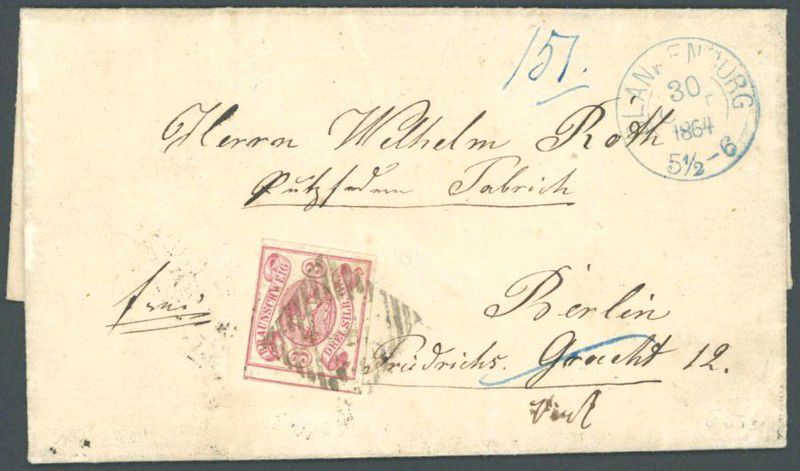 151.
BLANKENBURG
30
1864
5½-6
Herrn Wilhelm Roth
Putzfedern Fabrick
BRAUNSCHWEIG
DREI SILB. GR.
3
3
Berlin
Friedrichs. Gracht 12.